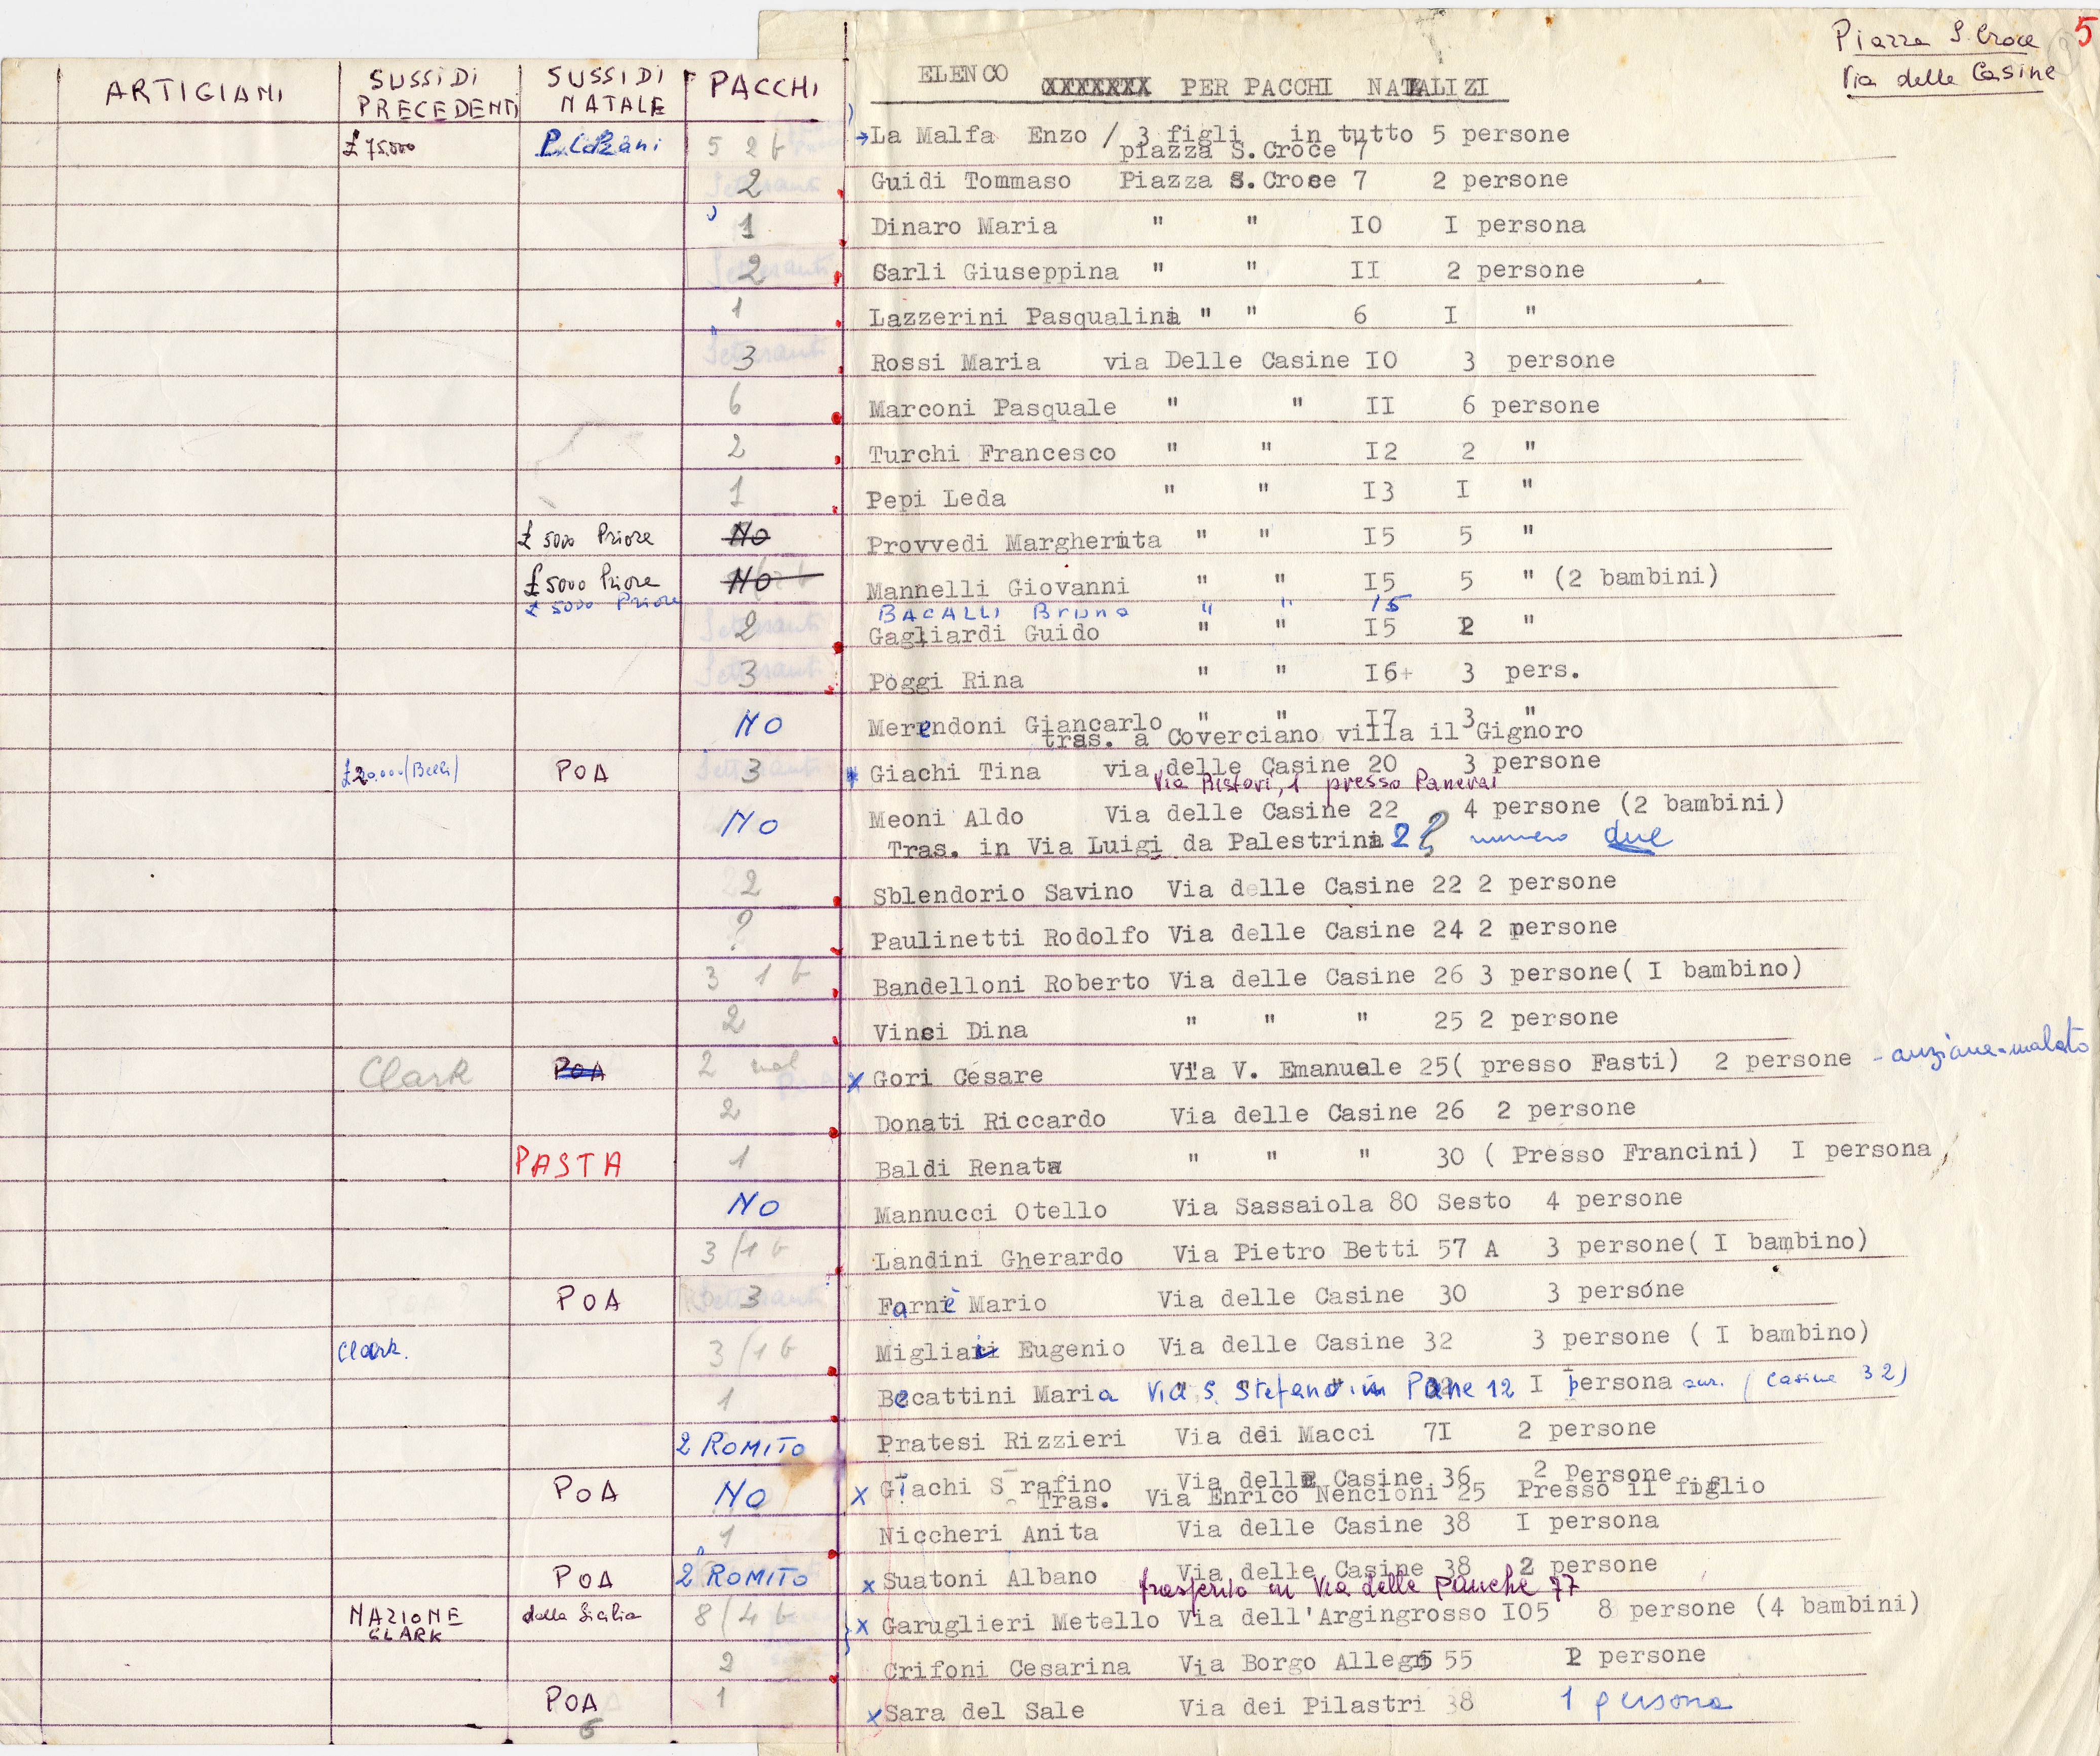 Piazza S. Croce 5
Via delle Casine
ARTIGIANI SUSSIDI PRECEDENTI SUSSIDI NATALE PACCHI ELENCO XXXXXXX PER PACCHI NATALIZI
£ 75.000 5 2 b La Malfa Enzo / 3 figli in tutto 5 persone
piazza S. Croce 7
2 Guidi Tommaso Piazza S. Croce 7 2 persone
1 Dinaro Maria " " IO I persona
2 Sarli Giuseppina " " II 2 persone
1 Lazzerini Pasqualina " " 6 I "
3 Rossi Maria via Delle Casine IO 3 persone
6 Marconi Pasquale " " II 6 persone
2 Turchi Francesco " " I2 2 "
1 Pepi Leda " " I3 I "
£ 5000 Priore No Provvedi Margherita " " I5 5 "
£ 5000 Priore No Mannelli Giovanni " " I5 5 " (2 bambini)
£ 5000 Priore BACALLI Bruno " " 15
2 Gagliardi Guido " " I5 2 "
3 Poggi Rina " " I6+ 3 pers.
NO Merendoni Giancarlo " " I7 3 "
tras. a Coverciano villa il Gignoro
£20.000 (Belli) POA 3 Giachi Tina via delle Casine 20 3 persone
Via Ristori, 1 presso Panerai
NO Meoni Aldo Via delle Casine 22 4 persone (2 bambini)
Tras. in Via Luigi da Palestrina 2 numero due
2 Sblendorio Savino Via delle Casine 22 2 persone
? Paulinetti Rodolfo Via delle Casine 24 2 persone
3 1 b Bandelloni Roberto Via delle Casine 26 3 persone( I bambino)
2 Vinci Dina " " " 25 2 persone
Clark POA 2 Gori Cesare Via V. Emanuele 25( presso Fasti) 2 persone - anziana-malato
2 Donati Riccardo Via delle Casine 26 2 persone
PASTA 1 Baldi Renata " " " 30 ( Presso Francini) I persona
NO Mannucci Otello Via Sassaiola 80 Sesto 4 persone
3/1 b Landini Gherardo Via Pietro Betti 57 A 3 persone( I bambino)
POA 3 Farnè Mario Via delle Casine 30 3 persone
Clark. 3/1 b Migliari Eugenio Via delle Casine 32 3 persone ( I bambino)
1 Becattini Maria Via S. Stefano in Pane 12 I persona (Casine 32)
2 ROMITO Pratesi Rizzieri Via dei Macci 7I 2 persone
POA NO x Giachi S rafino Via delle Casine 36 2 Persone
Tras. Via Enrico Nencioni 25 Presso il figlio
1 Niccheri Anita Via delle Casine 38 I persona
POA 2 ROMITO x Suatoni Albano Via delle Casine 38 2 persone
trasferito in Via delle Panche 77
NAZIONE CLARK della Sicilia 8/4 b x Garuglieri Metello Via dell'Argingrosso IO5 8 persone (4 bambini)
2 Crifoni Cesarina Via Borgo Allegri 55 2 persone
POA 1 x Sara del Sale Via dei Pilastri 38 1 persona
6